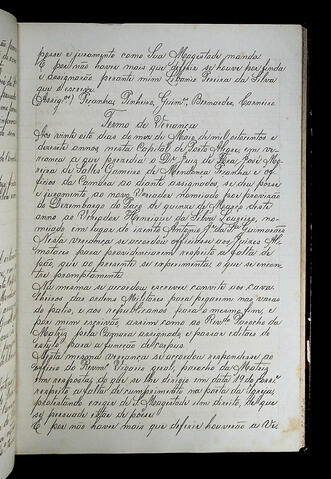 posse e juramento como Sua Magestade manda
E por não haver mais que deferir se houve por finda
e assignarão perante mim Libanio Pereira da Silva
que o escrevi
(Assig.os) Peçanha, Pinheiro, Guim.es Bernardes, Carneiro
Termo de Vereança
Aos vinte oito dias do mez de Maio de mil oitocentos e
dezesete annos nesta Capital de Porto Alegre em ve-
reança a que presidio o Dr. Juiz de Fora José Mo-
reira de Salles Gameiro de Mendonça Peçanha e of-
ficiaes da Camara ao diante assignados, se deu posse
e juramento ao novo Vereador nomeado por provisão
do Dezembargo do Paço de quinze de Março deste
anno ao Vereador Henrique da Silva Loureiro, no-
miado em lugar do izento Antonio J.e da S.a Guimarães
Nesta vereança se accordou officiar-se aos Juizes Al-
motaces para providenciarem respeito a falta de
pão, que ao presente se experimenta o que se encon-
trou promptamente
Na mesma se accordou escrever convite aos cava-
lheiros das ordens Militares para pegarem nas varas
do palio, e aos republicanos para o mesmo fim, e
por mim escrivão, assim como ao Rev.do Parocho da
Matriz pella Camara assignada, e passar editaes de
estylo para a função de corpus
Nesta mesma vereança se accordou responder-se ao
officio do Revm.o Vigario geral, parocho da Matriz
em resposta do que se lhe dirigio em data 19 do corr.e
respeito a falta de cumprimento na porta da Igreja
protestando exigir de S. Magestade um direito, de que
se persuade estar de posse
E por não haver mais que deferir houverão a Ver